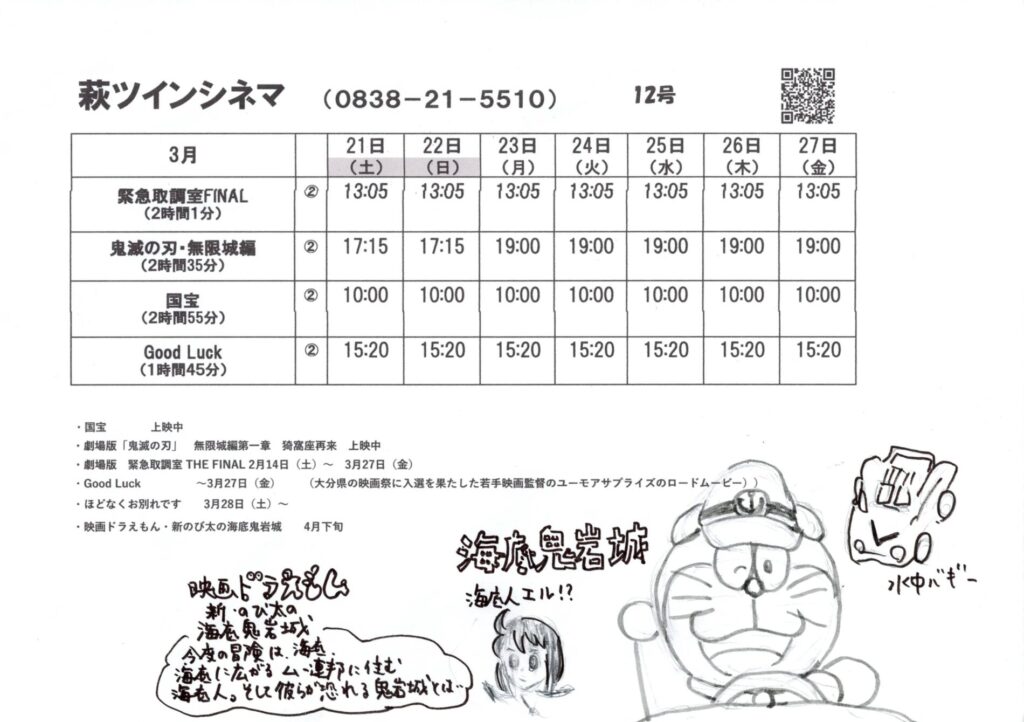 萩ツインシネマ （0838－21－5510） 12号
3月 21日 22日 23日 24日 25日 26日 27日
（土） （日） （月） （火） （水） （木） （金）
緊急取調室FINAL ② 13:05 13:05 13:05 13:05 13:05 13:05 13:05
（2時間1分）
鬼滅の刃・無限城編 ② 17:15 17:15 19:00 19:00 19:00 19:00 19:00
（2時間35分）
国宝 ② 10:00 10:00 10:00 10:00 10:00 10:00 10:00
（2時間55分）
Good Luck ② 15:20 15:20 15:20 15:20 15:20 15:20 15:20
（1時間45分）
・国宝　上映中
・劇場版「鬼滅の刃」　無限城編第一章　猗窩座再来　上映中
・劇場版　緊急取調室 THE FINAL 2月14日（土）～　3月27日（金）
・Good Luck　～3月27日（金）　（大分県の映画祭に入選を果たした若手映画監督のユーモアサプライズのロードムービー））
・ほどなくお別れです　3月28日（土）～
・映画ドラえもん・新のび太の海底鬼岩城　4月下旬
海底鬼岩城
海底人エル!?
水中バギー
映画ドラえもん
新・のび太の
海底鬼岩城
今度の冒険は、海底、
海底に広がるムー連邦に住む
海底人。そして彼らが恐れる鬼岩城とは…